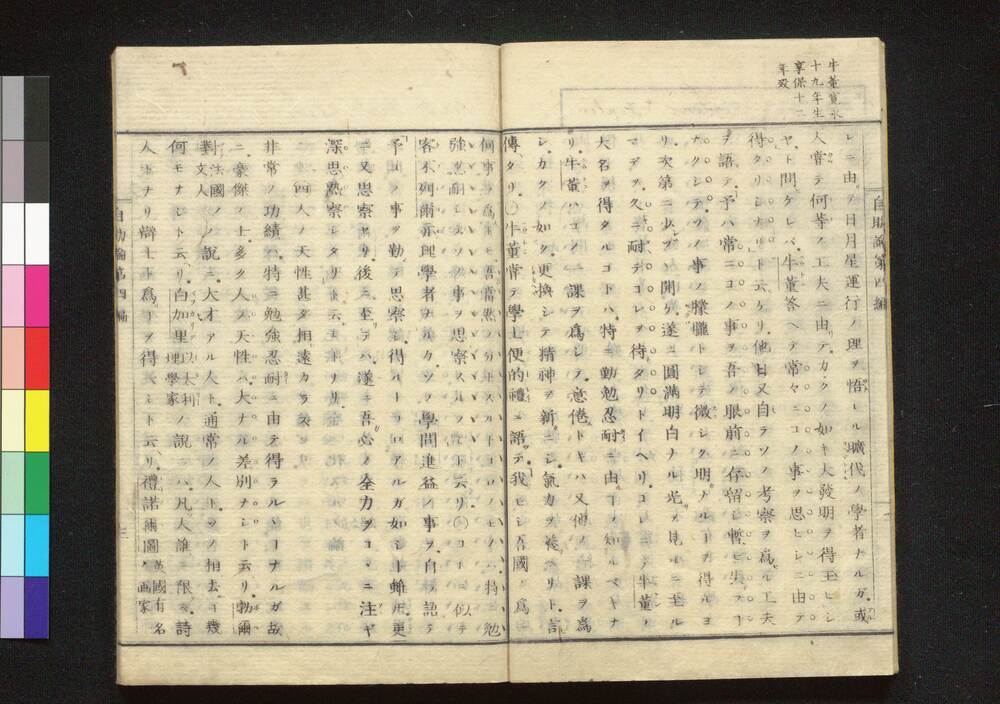 牛董寛永
十九年生
享保十二
年歿
自助論第四編
レニ由テ日月星運行ノ理ヲ悟レル曠代ノ學者ナルガ或
人嘗テ何等ノ工夫ニ由テカクノ如キ大發明ヲ得玉ヒシ
ヤト問ケレバ牛董答ヘテ常々ニコノ事ヲ思ヒシニ由テ
得タリシナリト云ケリ他日又自ラソノ考察ヲ爲ル工夫
ヲ語テ予ハ常ニコノ事ヲ吾ノ眼前ニ存留シ暫ヒ失フヿ
ナクシテソノ事ノ朦朧トシテ微シク明ナルヿヲ得ルヨ
リ次第ニ少シヅヽ開ケ遂ニ圓滿明白ナル光ヲ見ルニ至ル
マデヲ久ニ耐テコレヲ待タリトイヘリコレニテ牛董ノ
大名ヲ得タルコトハ特ニ勤勉忍耐ニ由ヿヲ知ルベキナ
リ牛董ハコノ一課ヲ爲シテ意倦トキハ又他ノ課ヲ爲
シカクノ如ク更換シテ精神ヲ新ニシ氣力ヲ養ヘリト言
傳タリ○牛董嘗テ學士便的禮ニ語テ我モシ吾國ニ爲
何事ヲ爲
強忍耐シテソノ事ヲ思察スルヿ
客不列爾亦理學者ナルカソノ學問進益ノ事ヲ自ラ語テ
予ソノ事ヲ勤テ思察シ得ルトコロアルガ如シト雖ドモ更
ニ又思察セリ後ニ至テハ遂ニ吾心ノ全力ヲコヽニ注ギ
深思默察シタリト云
四人ノ天性甚タ相遠カラズ
非常ノ功績ハ特ニ勉強忍耐ニ由テ得ラルヽヿナルガ故
ニ豪傑ノ士多ク人ノ天性ハ大ナル差別ナシト云リ勃爾
對法國ノ文人ノ説ニ大才アル人ト通常ノ人トソノ相去ヿ幾
何モナシト云リ白加里以太利理學家ノ説ニハ凡人誰ニ限ラズ詩
人トナリ辯士ト爲ヿヲ得ベシト云リ禮諾爾圖英國有名ノ画家
自助論第四編
三